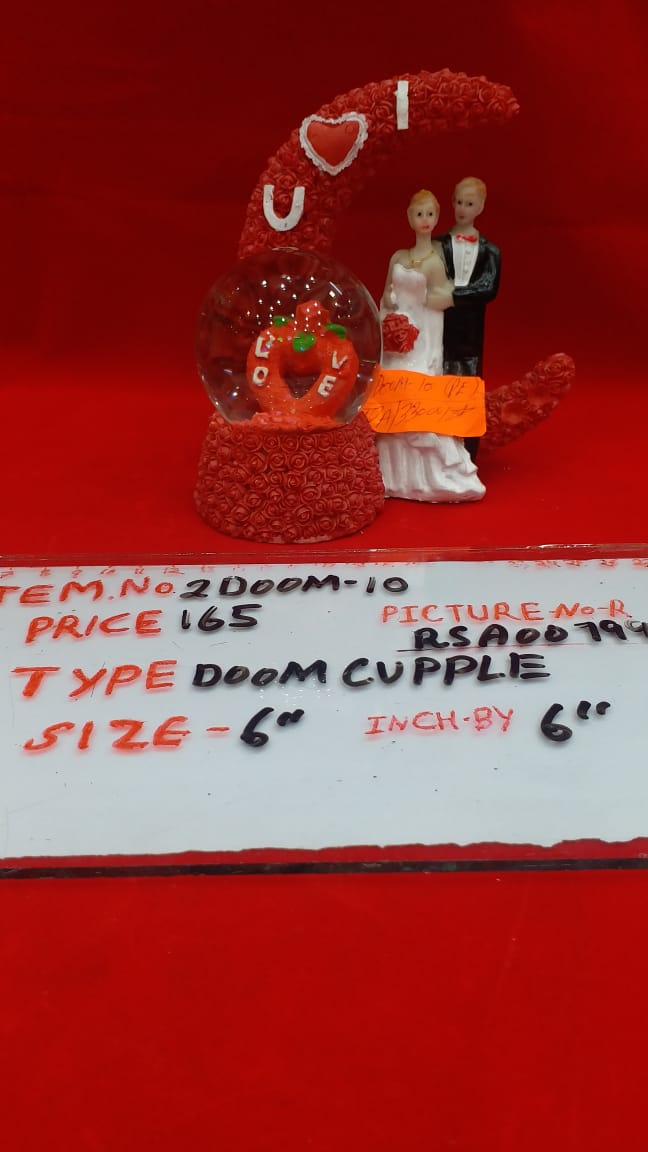 I
U
LOVE
DOOM-10
ITEM.No. 2DOOM-10
PRICE 165 PICTURE-No-R
RSA00799
TYPE DOOM CUPPLE
SIZE - 6" INCH-BY 6"